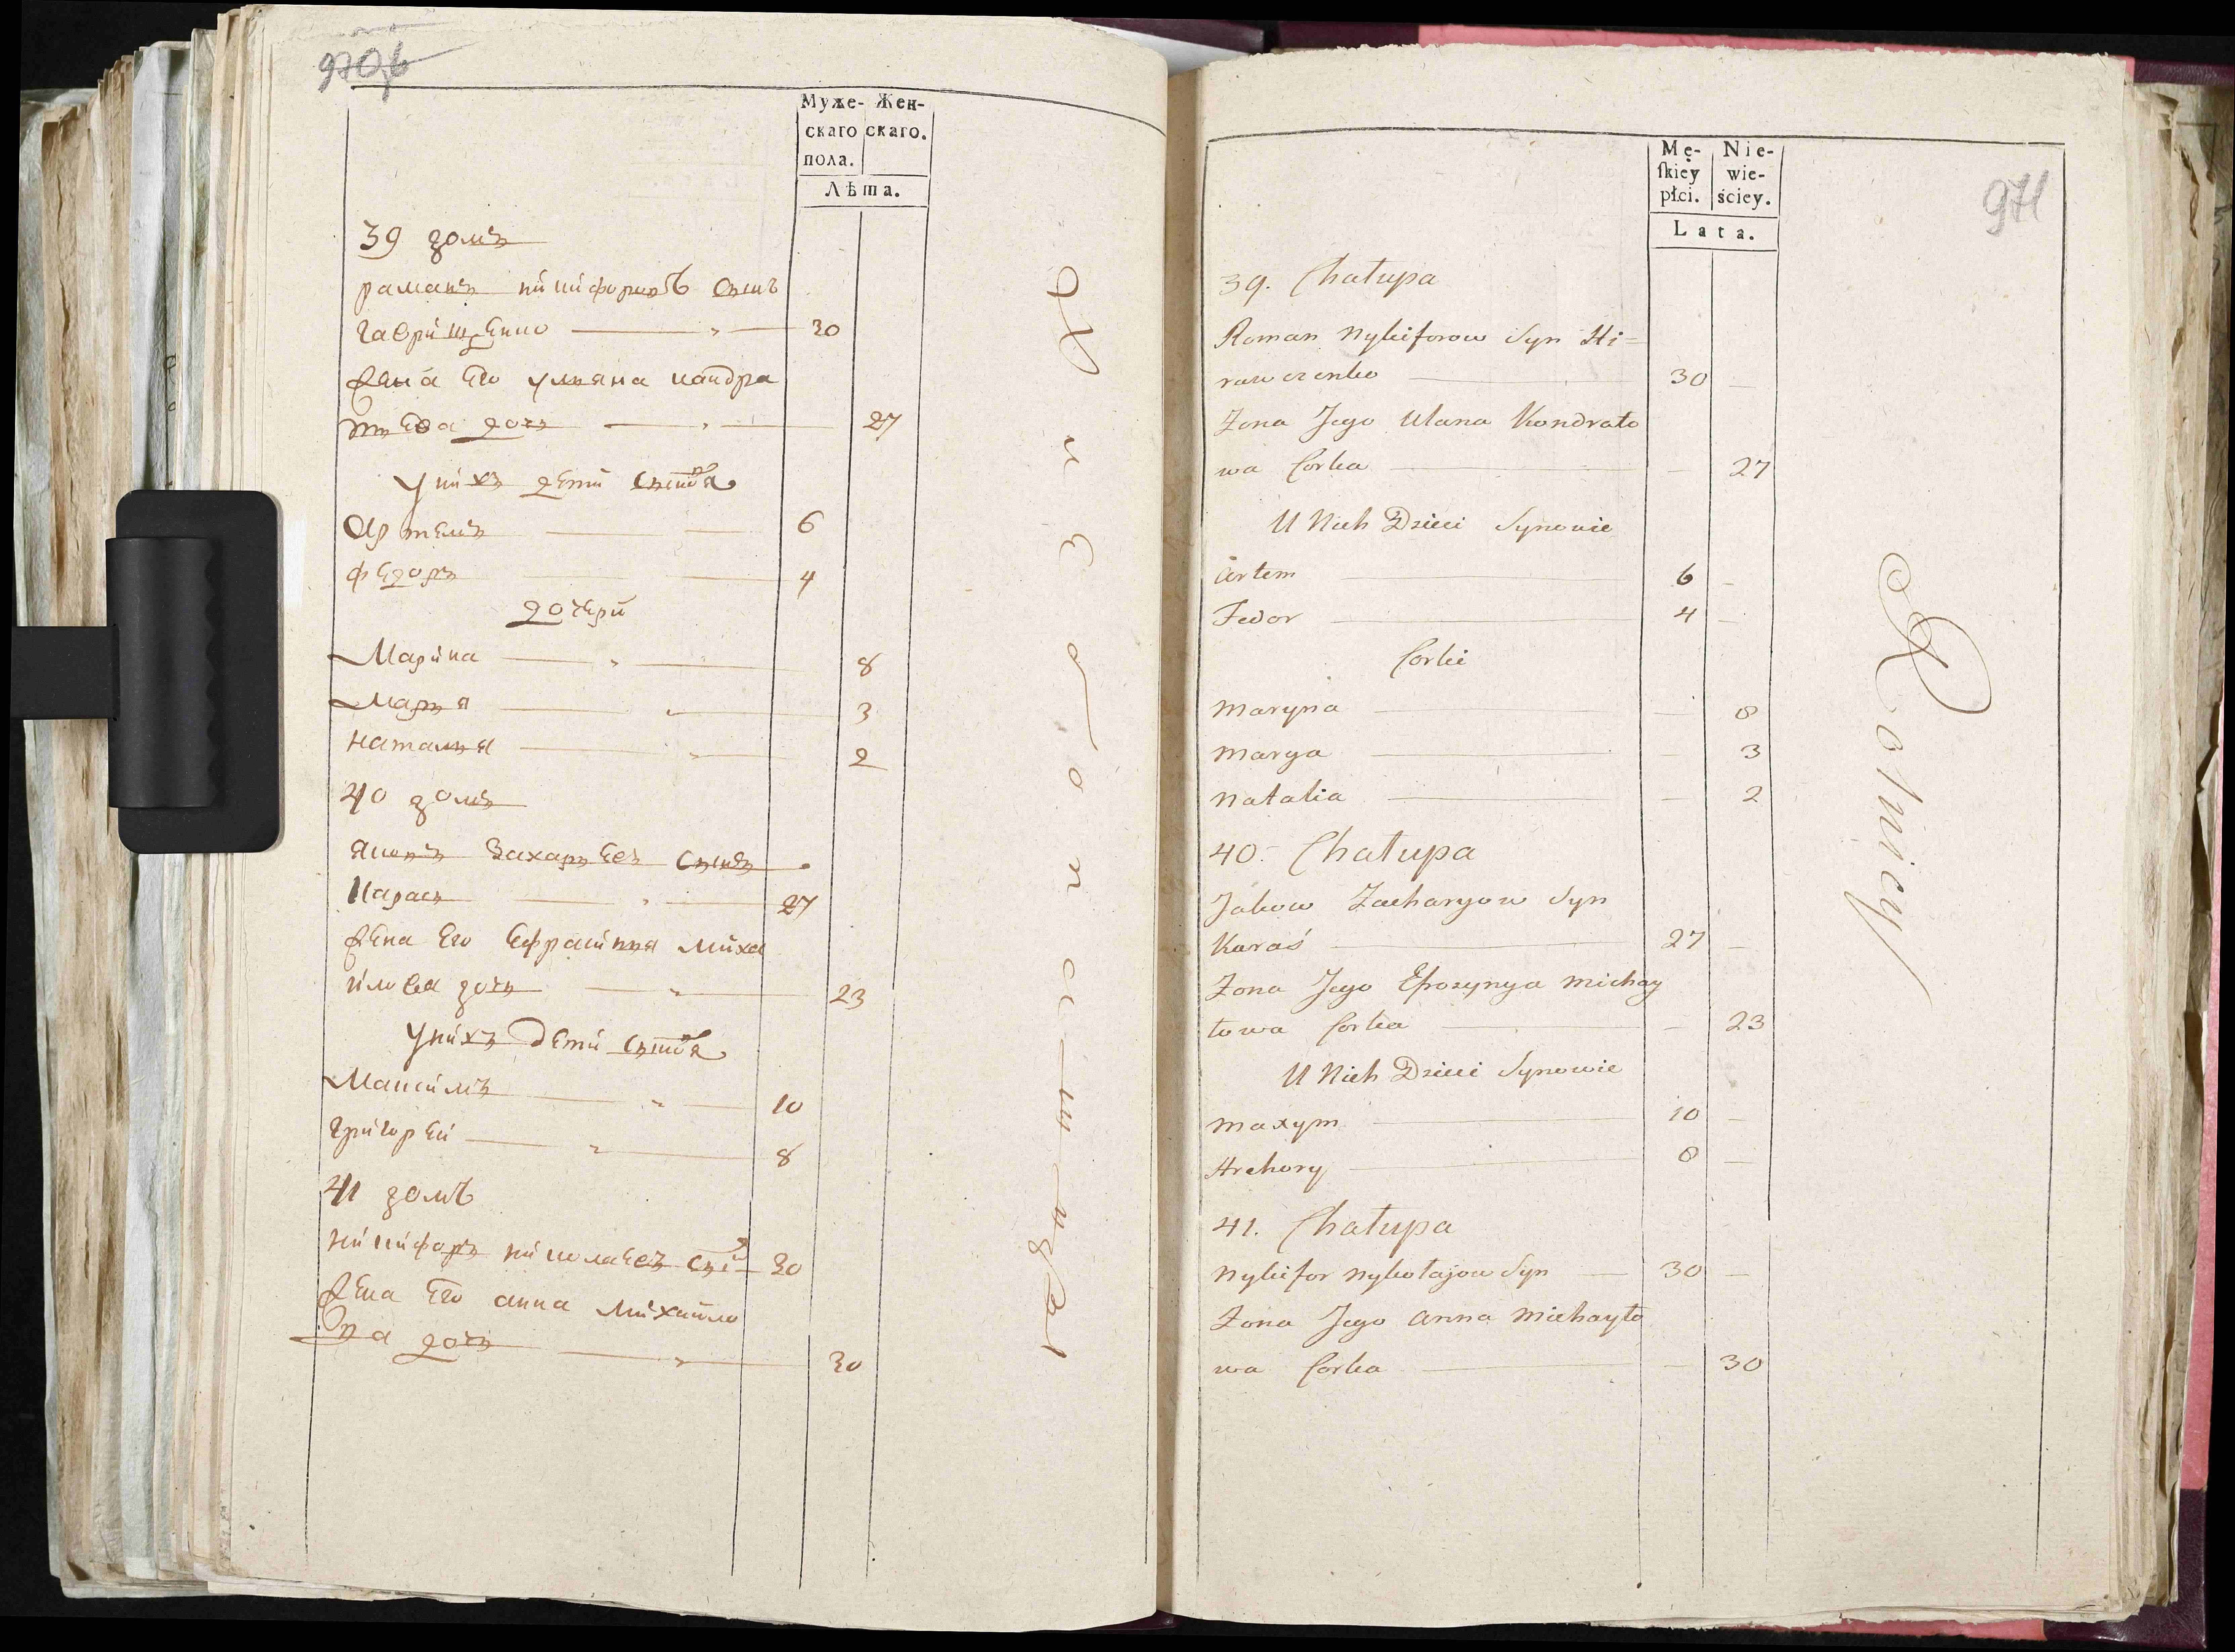 970б
Муже- Жен-
скаго скаго.
пола.
Лѣта.
39 домъ
раманъ никифоровъ сынъ
гаврищенко 30
жена его ульяна кандра
тьева дочь 27
у нихъ дети сыновя
Артемъ 6
федоръ 4
дочери
Марина 8
Марья 3
наталья 2
40 домъ
яковъ Захарьевъ сынъ
Карась 27
жена его ефрасинья миха
илова дочь 23
у нихъ дети сыновя
Максимъ 10
григорей 8
41 домъ
никифоръ николаевъ сынъ 30
жена его анна михайло
ва дочь 30
971
Mę- Nie-
skiey wie-
płci. ściey.
Lata.
39. Chałupa
Roman Nykiforow Syn Hi=
rawczenko 30
Zona Jego Ulana Kondrato
wa Corka 27
U Nich Dzieci Synowie
Artem 6
Fedor 4
Corki
Maryna 8
Marya 3
Natalia 2
40. Chałupa
Jakow Zacharyow Syn
Karaś 27
Zona Jego Efrozynya Michay
łowa Corka 23
U Nich Dzieci Synowie
Maxym 10
Hrehory 8
41. Chałupa
Nykifor Nykołajow Syn 30
Zona Jego Anna Michayło
wa Corka 30
Rolnicy